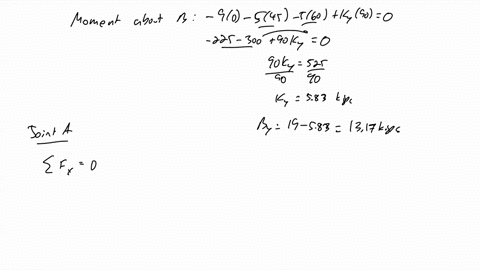 Moment about B: -9(0) - 5(45) - 5(60) + Ky(90) = 0
-225 - 300 + 90Ky = 0
90Ky = 525
90 90
Ky = 5.83 kips
By = 19 - 5.83 = 13.17 kips
Joint A
∑Fx = 0